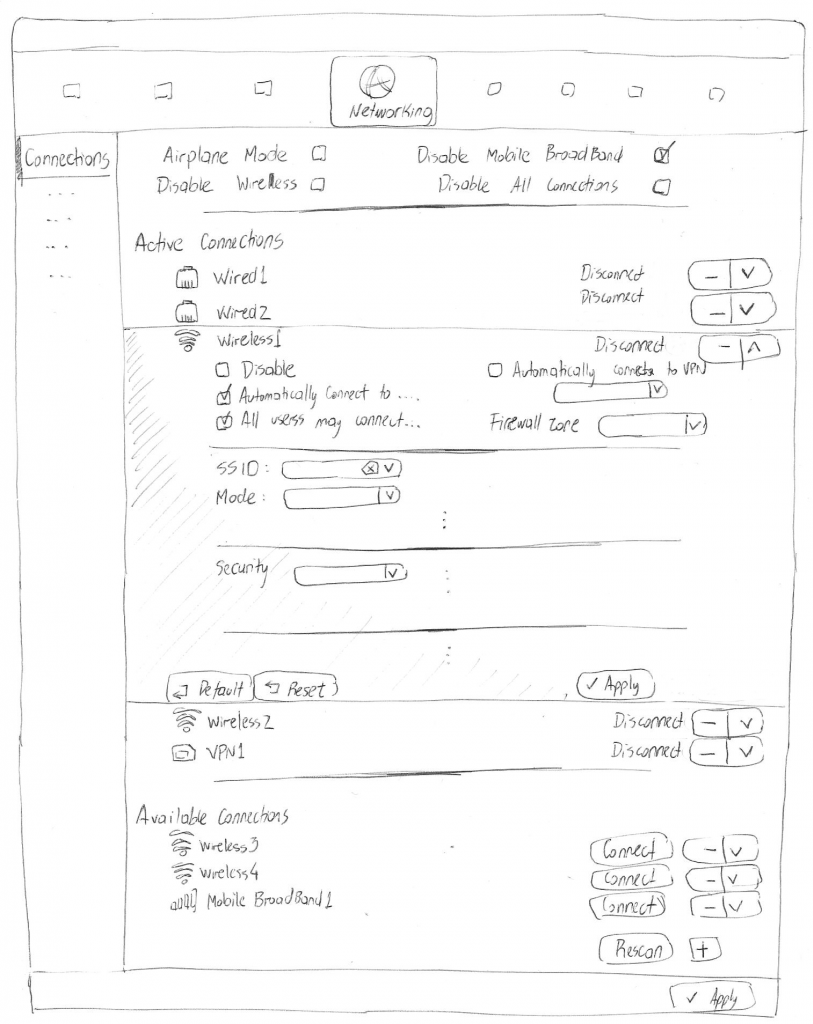 Networking
Connections
Airplane Mode
Disable Mobile BroadBand
Disable Wireless
Disable All Connections
Active Connections
Wired1
Disconnect
Wired2
Disconnect
Wireless1
Disconnect
Disable
Automatically connects to VPN
Automatically Connect to ....
All userss may connect...
Firewall Zone
SSID:
Mode:
Security
Default
Reset
Apply
Wireless2
Disconnect
VPN1
Disconnect
Available Connections
Wireless3
Connect
Wireless4
Connect
Mobile BroadBand1
Connect
Rescan
Apply